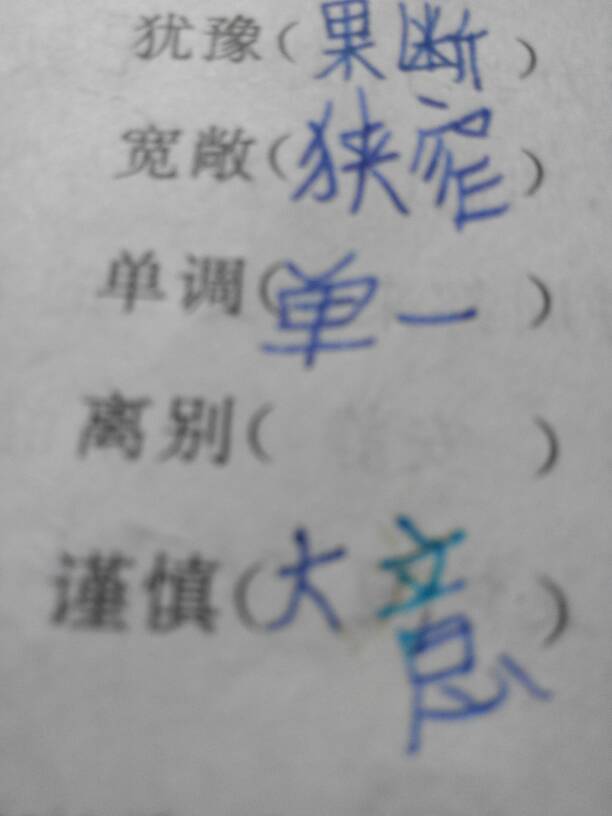 犹豫(果断)
宽敞(狭窄)
单调(单一)
离别( )
谨慎(大意)